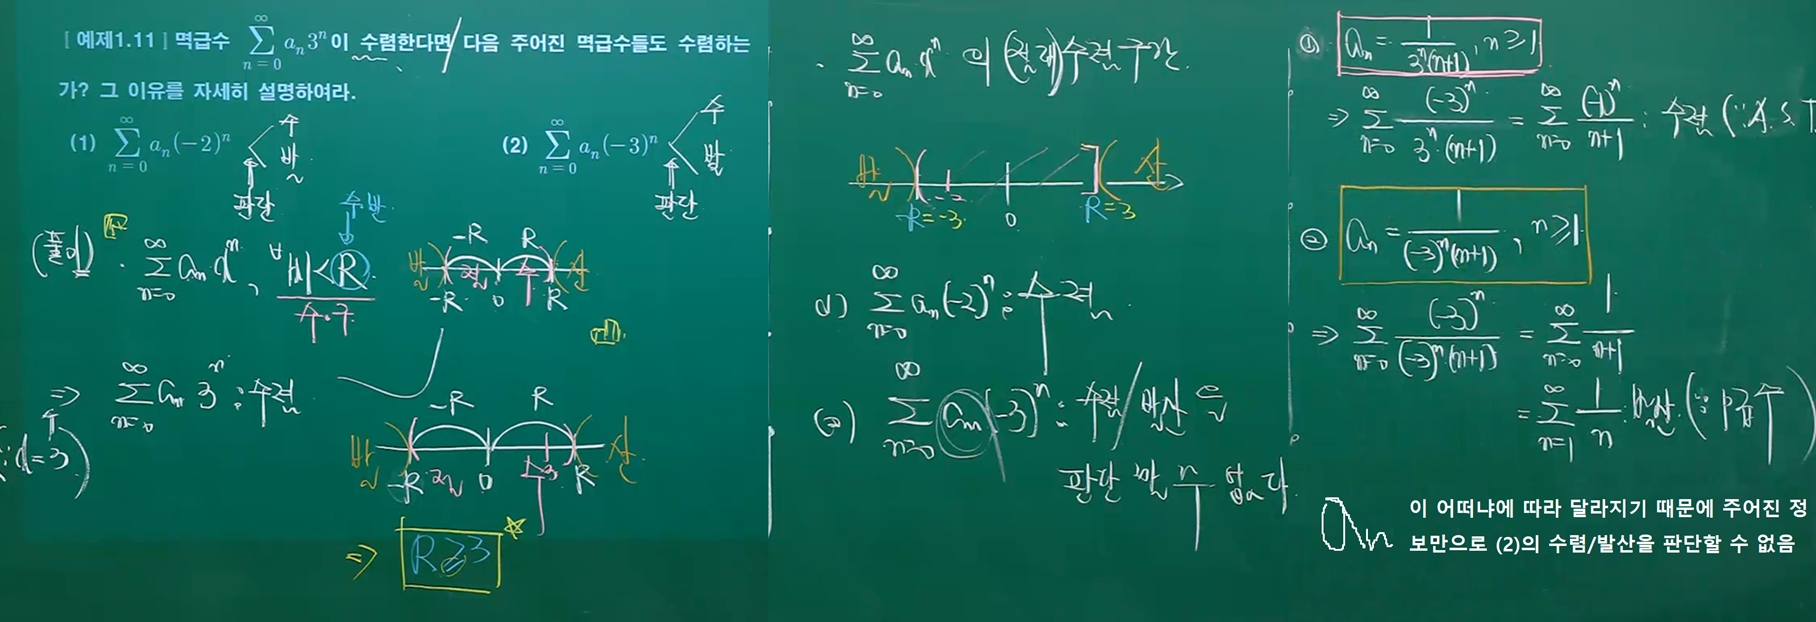 [예제1.11] 멱급수 \sum_{n=0}^{\infty} a_n 3^n 이 수렴한다면 다음 주어진 멱급수들도 수렴하는
가? 그 이유를 자세히 설명하여라.
(1) \sum_{n=0}^{\infty} a_n(-2)^n 수 발 판단
(2) \sum_{n=0}^{\infty} a_n(-3)^n 수 발 판단
수반
(풀이) · \sum_{n=0}^{\infty} a_n x^n, ∀|x| < R
수·구
-R R
발 수 산
-R 0 R
⇒ \sum_{n=0}^{\infty} a_n 3^n : 수렴
(∵ x=3)
-R R
발 산
-R 0 3 R
⇒ R ≥ 3 ☆
· \sum_{n=0}^{\infty} a_n x^n 의 (절대)수렴구간
발 산
-2
R=-3 0 R=3
(1) \sum_{n=0}^{\infty} a_n(-2)^n : 수렴
(2) \sum_{n=0}^{\infty} a_n(-3)^n : 수렴/발산은
판단할 수 없다.
① a_n = \frac{1}{3^n(n+1)}, n ≥ 1
⇒ \sum_{n=0}^{\infty} \frac{(-3)^n}{3^n·(n+1)} = \sum_{n=0}^{\infty} \frac{(-1)^n}{n+1} : 수렴 (∵ A.S.T
② a_n = \frac{1}{(-3)^n(n+1)}, n ≥ 1
⇒ \sum_{n=0}^{\infty} \frac{(-3)^n}{(-3)^n·(n+1)} = \sum_{n=0}^{\infty} \frac{1}{n+1}
= \sum_{n=1}^{\infty} \frac{1}{n} : 발산 (∵ p급수)
a_n 이 어떠냐에 따라 달라지기 때문에 주어진 정
보만으로 (2)의 수렴/발산을 판단할 수 없음